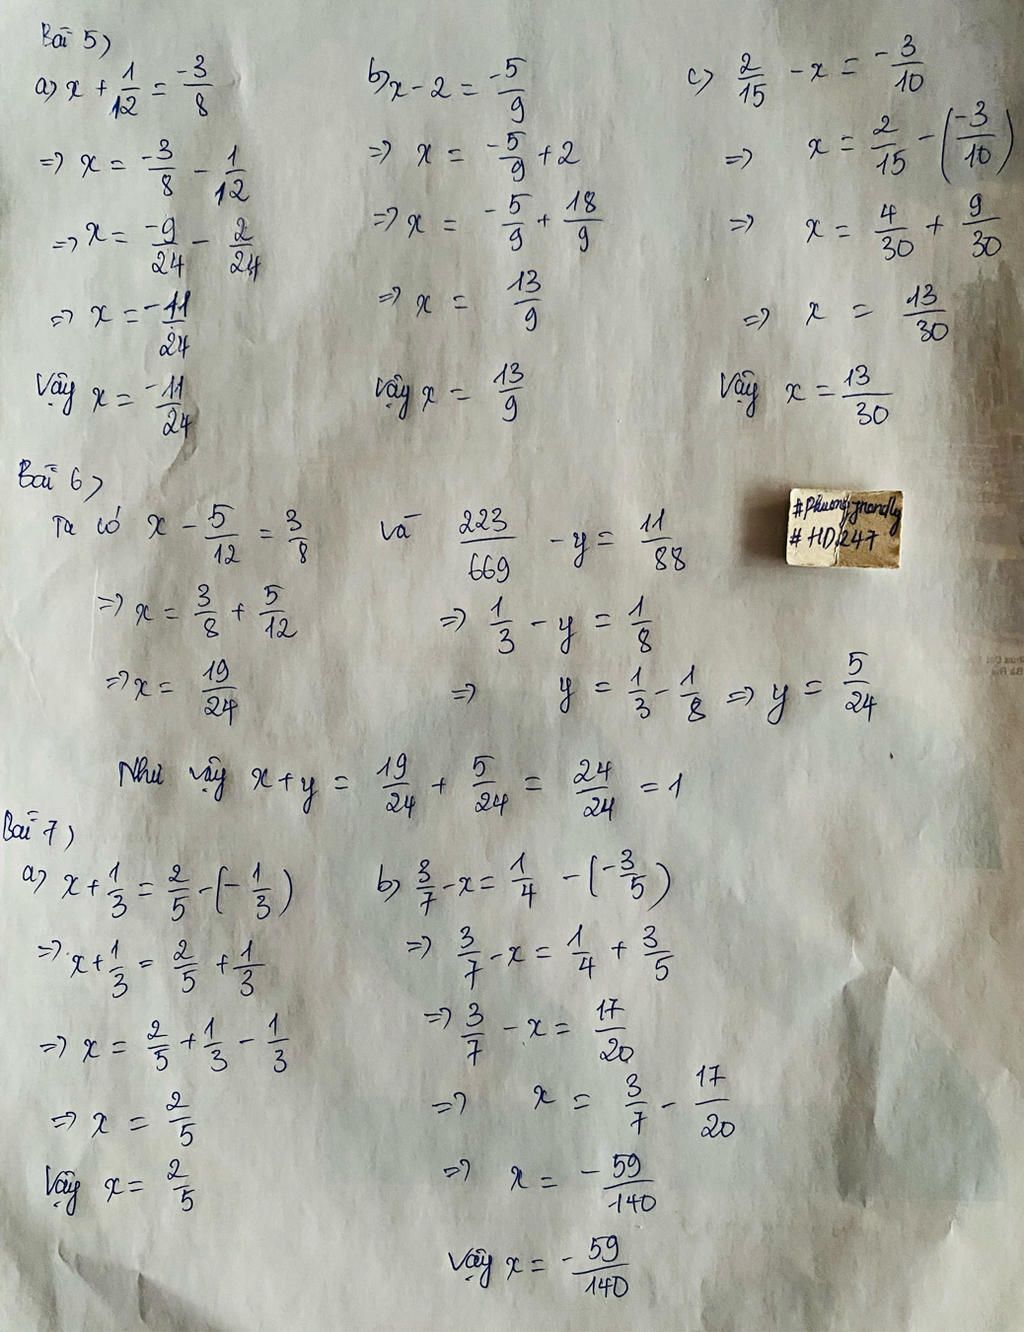 Bài 5)
a) x + 1/12 = -3/8
=> x = -3/8 - 1/12
=> x = -9/24 - 2/24
=> x = -11/24
Vậy x = -11/24
b) x - 2 = -5/9
=> x = -5/9 + 2
=> x = -5/9 + 18/9
=> x = 13/9
Vậy x = 13/9
c) 2/15 - x = -3/10
=> x = 2/15 - (-3/10)
=> x = 4/30 + 9/30
=> x = 13/30
Vậy x = 13/30
Bài 6)
Ta có x - 5/12 = 3/8
=> x = 3/8 + 5/12
=> x = 19/24
Và 223/669 - y = 11/88
=> 1/3 - y = 1/8
=> y = 1/3 - 1/8 => y = 5/24
#HD247
Như vậy x + y = 19/24 + 5/24 = 24/24 = 1
Bài 7)
a) x + 1/3 = 2/5 - (-1/3)
=> x + 1/3 = 2/5 + 1/3
=> x = 2/5 + 1/3 - 1/3
=> x = 2/5
Vậy x = 2/5
b) 3/7 - x = 1/4 - (-3/5)
=> 3/7 - x = 1/4 + 3/5
=> 3/7 - x = 17/20
=> x = 3/7 - 17/20
=> x = -59/140
Vậy x = -59/140